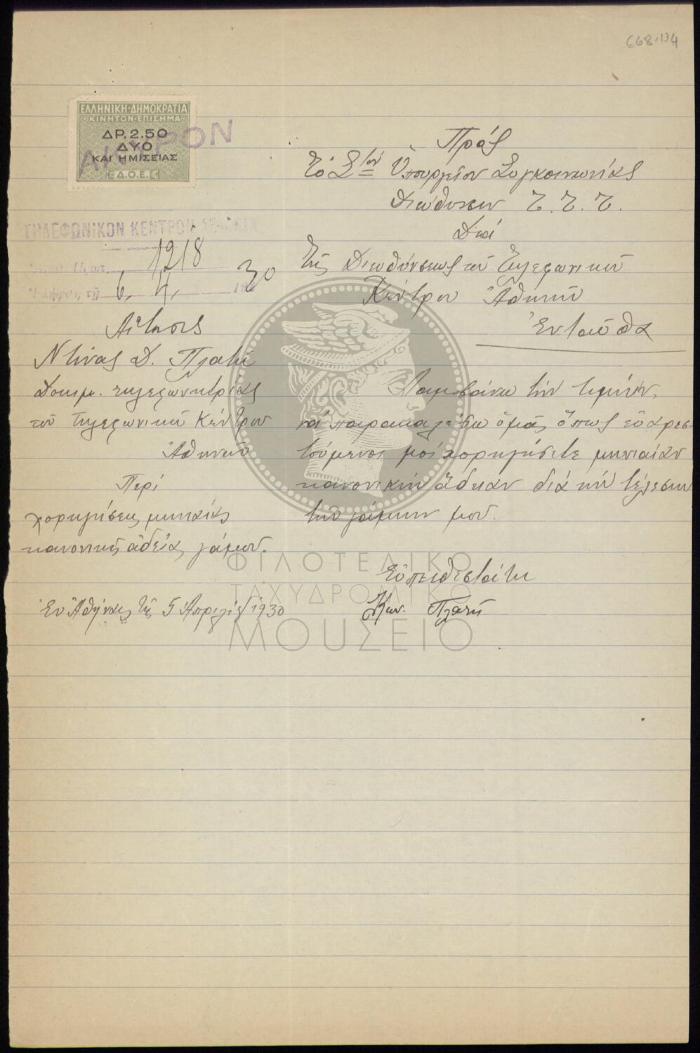 668.134
ΕΛΛΗΝΙΚΗ ΔΗΜΟΚΡΑΤΙΑ
ΚΙΝΗΤΟΝ ΕΠΙΣΗΜΑ
ΔΡ. 2.50
ΔΥΟ
ΚΑΙ ΗΜΙΣΕΙΑΣ
Ε.Δ.Ο.Ε.
ΑΚΥΡΟΝ
ΤΗΛΕΦΩΝΙΚΟΝ ΚΕΝΤΡΟΝ
1218
6 4 30
Πρὸς
Τὸ Σ=τὸν Ὑπουργεῖον Συγκοινωνίας
Διεύθυνσιν Τ. Τ. Τ.
Διὰ
Τῆς Διευθύνσεως τοῦ Τηλεφωνικοῦ
Κέντρου Ἀθηνῶν
Ἐνταῦθα
Αἴτησις
Ντίνας Δ. Πλατῆ
Δοκιμ. τηλεφωνητρίας
τοῦ Τηλεφωνικοῦ Κέντρου
Ἀθηνῶν
Περὶ
χορηγήσεως μηνιαίας
κανονικῆς ἀδείας γάμου.
Ἐν Ἀθήναις τῇ 5 Ἀπριλίου 1930
Λαμβάνω τὴν τιμὴν,
νὰ παρακαλέσω ὑμᾶς ὅπως εὐαρεσ
τούμενοι μοὶ χορηγήσητε μηνιαίαν
κανονικὴν ἄδειαν διὰ τὴν τέλεσιν
τῶν γάμων μου.
Εὐπειθεστάτη
Πλατῆ
ΦΙΛΟΤΕΛΙΚΟ
ΤΑΧΥΔΡΟΜΙΚΟ
ΜΟΥΣΕΙΟ